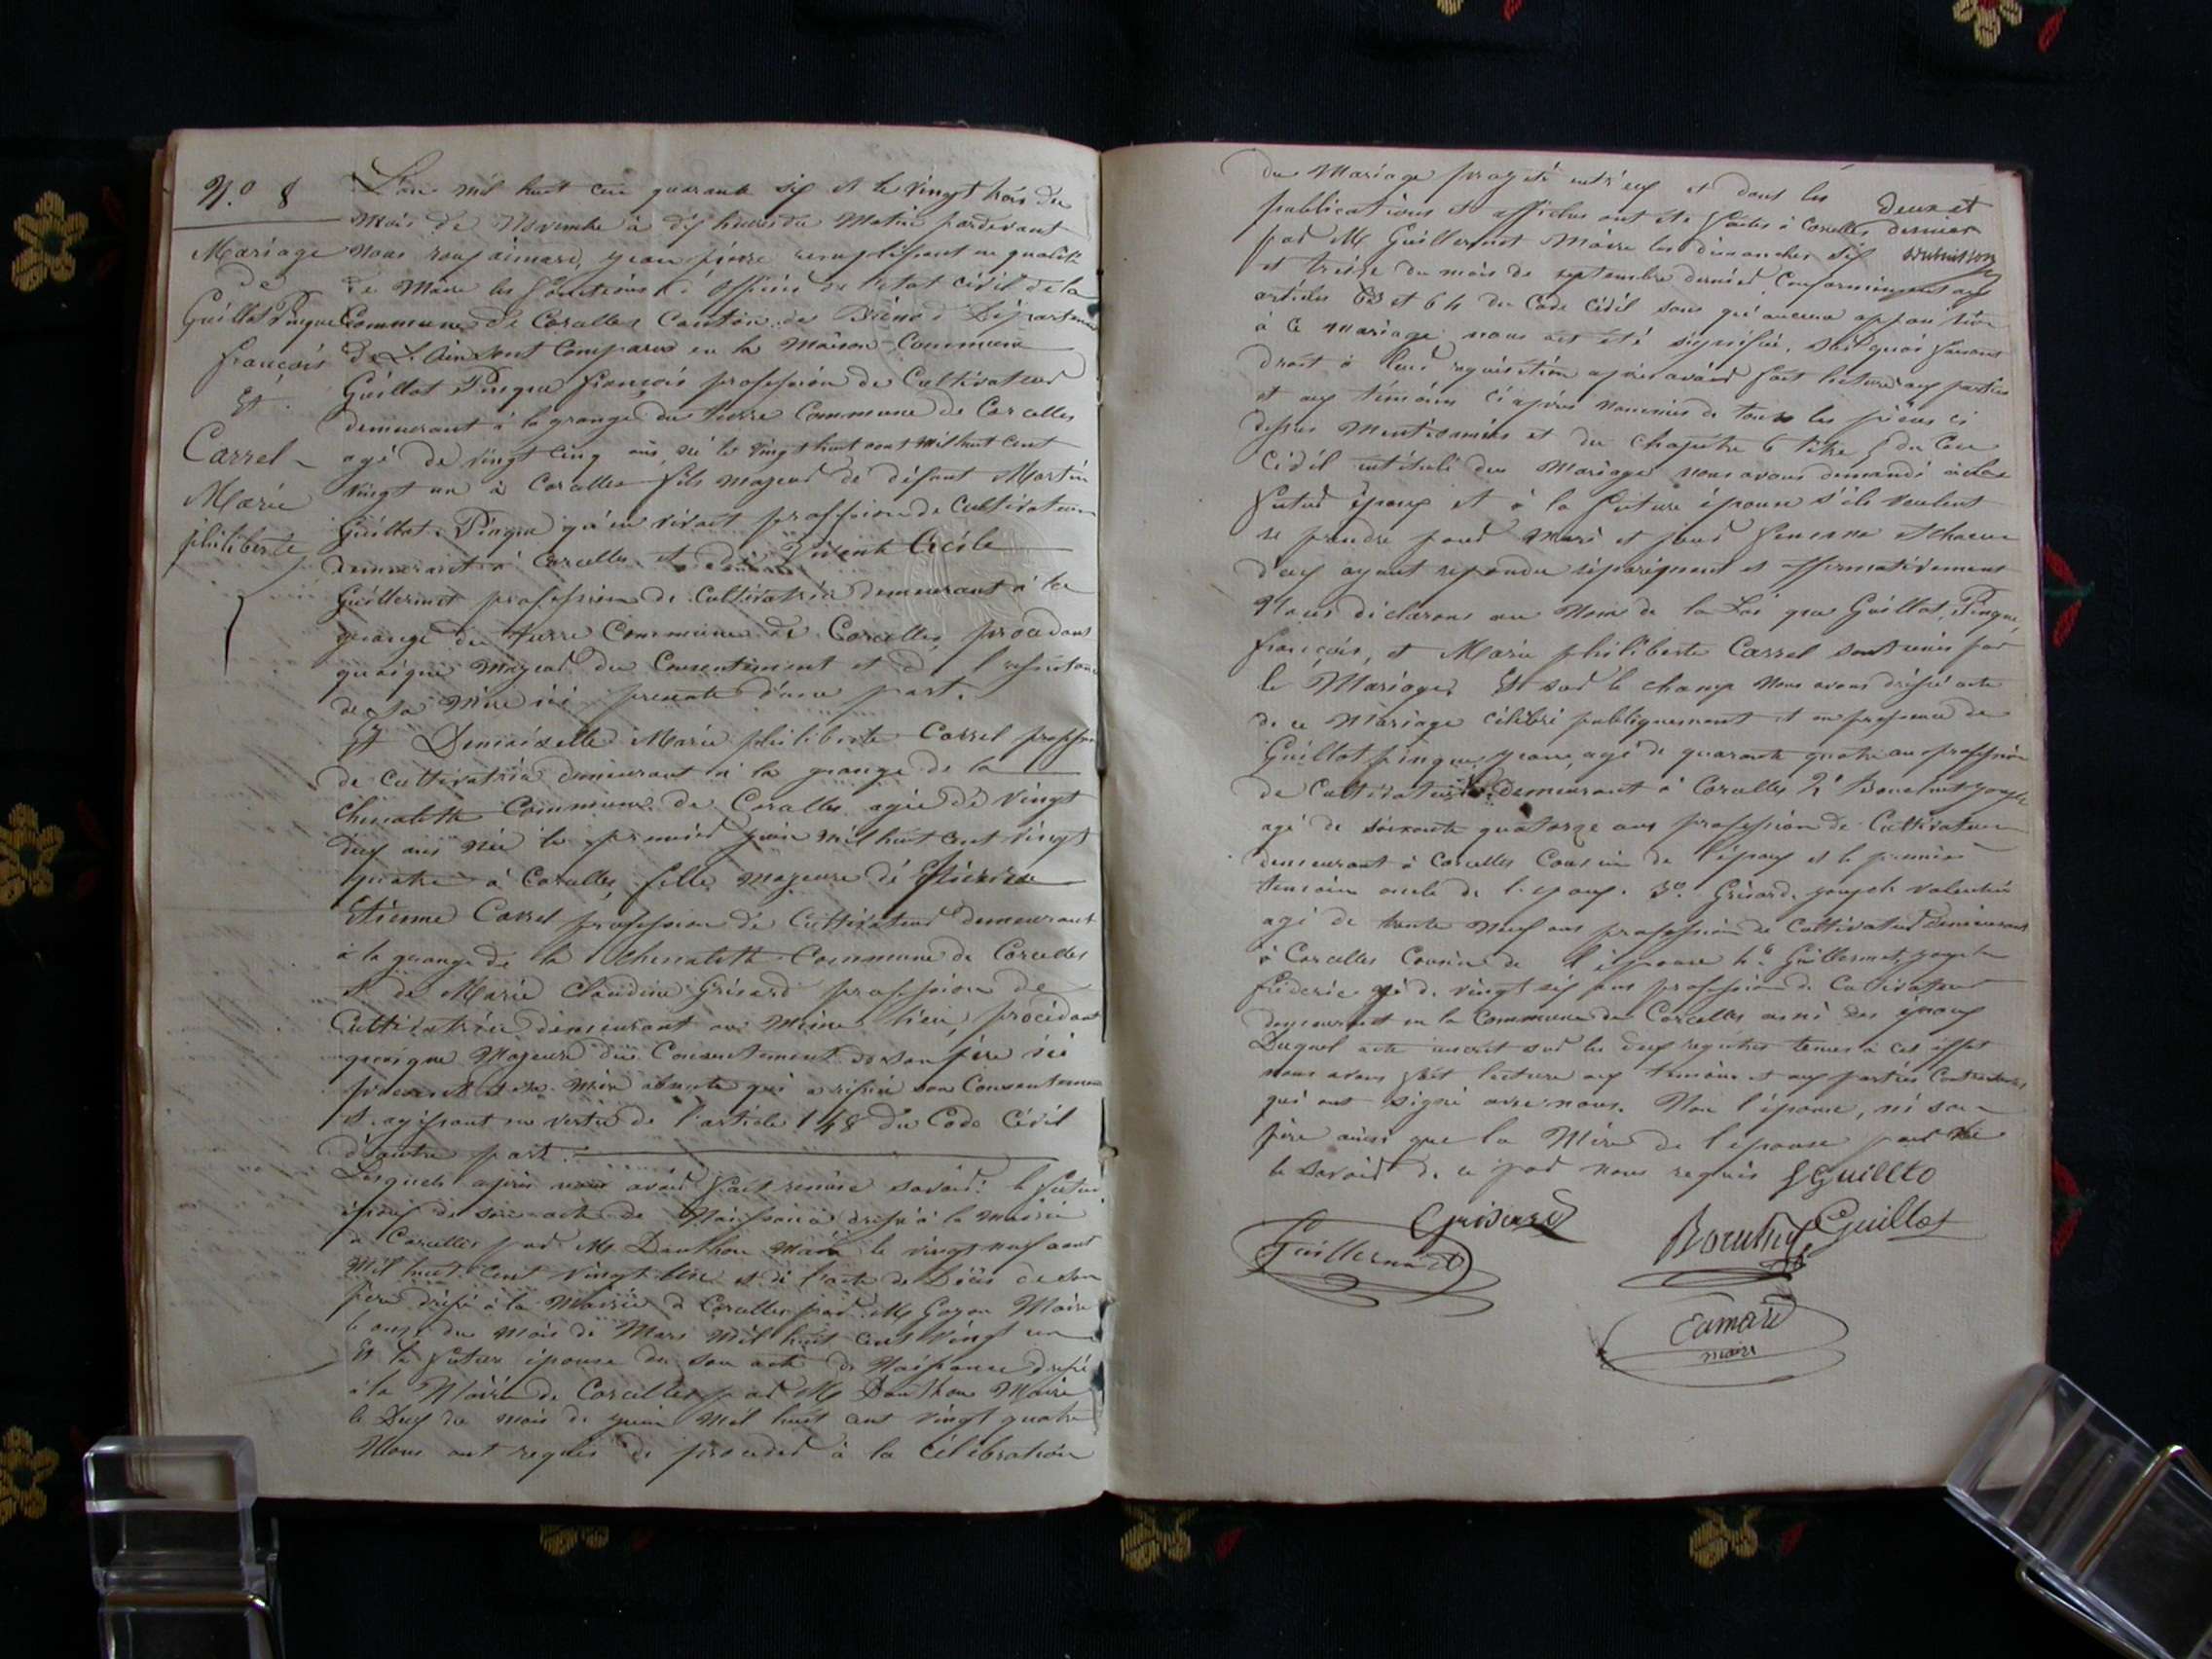 N.o 8
Mariage
de
Guillot Pingue
françois
Et
Carrel
Marie
philiberte
L'an mil huit cent quarante six et le vingt trois du
mois de Novembre à dix heures du Matin pardevant
Nous aimard, jean pierre remplissant en qualité
de Maire les fonctions d'officier de l'etat civil de la
Commune de Corcelles Canton de Départeme
De L'Ain sont Comparus en la Maison Commune
Guillot Pingue françois profession de Cultivateur
demeurant à la grange du tierre Commune de Corcelles
agé de vingt cinq ans né le vingt huit aout mil huit cent
vingt un à Corcelles fils majeur de défunt Martin
Guillot Pingue qu'en vivait proffession de Cultivateur
demeurant à Corcelles et de vivante Cécile
Guillermet profession de Cultivatrice demeurant à la
grange du tierre Commune de Corcelles, procedant
quoique Majeur du Consentement et de l'assistance
de sa Mère ici presente d'une part.
Et Demoiselle Marie philiberte Carrel profession
de Cultivatrice demeurant à la grange de la
Chenalette Commune de Corcelles agée de vingt
deux ans née le premier juin mil huit cent vingt
quatre à Corcelles fille majeure de
Etienne Carrel profession de Cultivateur demeurant
à la grange de la Chenalette Commune de Corcelles
et de Marie Claudine Grisard proffession de
Cultivatrice demeurant au même lieu, procédant
quoique Majeure du Consentement de son père ici
présent et sa mère absente qui a refusé son Consentement
et agissant en vertu de l'article 148 du Code Civil
d'autre part.
Lesquels après nous avoir fait remise savoir: le futur
époux de son acte de Naissance dressé à la mairie
de Corcelles par M. Danthon Maire le vingt neuf aout
Mil huit Cent vingt un et de l'acte de Décès de son
père dressé à la Mairie de Corcelles par M. Goyon Maire
le onze du mois de Mars mil huit cent vingt un
Et la future épouse de son acte de Naissance dressé
à la Mairie de Corcelles par M. Danthon Maire
le Deux du mois de juin mil huit cent vingt quatre
Nous ont requis de procéder à la célébration
du Mariage projeté entr'eux et dont les
publications et affiches ont été faites à Corcelles
par M. Guillermet Maire les dimanches six
et treize du mois de septembre dernier Conformément aux
articles 63 et 64 du Code Civil sans qu'aucune opposition
à ce mariage nous ait été signifiée, sur quoi faisant
droit à leur requisition après avoir fait lecture aux parties
et aux témoins ci après nommés de toutes les pièces ci
dessus mentionnées et du chapitre 6 titre 5 du Code
Civil intitulé du Mariage nous avons demandé
futur époux et à la future épouse s'ils veulent
se prendre pour Mari et pour femme et chacun
d'eux ayant repondu séparément et affirmativement
Nous déclarons au Nom de la Loi que Guillot, Pingue,
françois, et Marie philiberte Carrel sont unis par
le Mariage. Et sur le champ Nous avons dressé acte
de ce Mariage célébré publiquement et en presence de
Guillot pingue jean, agé de quarante quatre ans profession
de Cultivateur demeurant à Corcelles 2° joseph
agé de soixante quatorze ans profession de Cultivateur
demeurant à Corcelles Cousin de l'époux et le premier
temoin oncle de l'epoux. 3° Grisard joseph valentin
agé de trente Neuf ans profession de Cultivateur demeurant
à Corcelles Cousin de l'épouse 4° Guillermet, joseph
fréderic agé de vingt six ans profession de Cultivateur
demeurant en la Commune de Corcelles ami des époux
Duquel acte inscrit sur les deux registres tenus à cet effet
nous avons fait lecture aux temoins et aux parties Contractantes
qui ont signé avec nous. Non l'épouse, ni son
père ainsi que la Mère de l'epoux pour ne
le savoir de ce par nous requis
deux et
dernier
Guillot
Grisard
Guillermet
Guillot
Eamard
maire